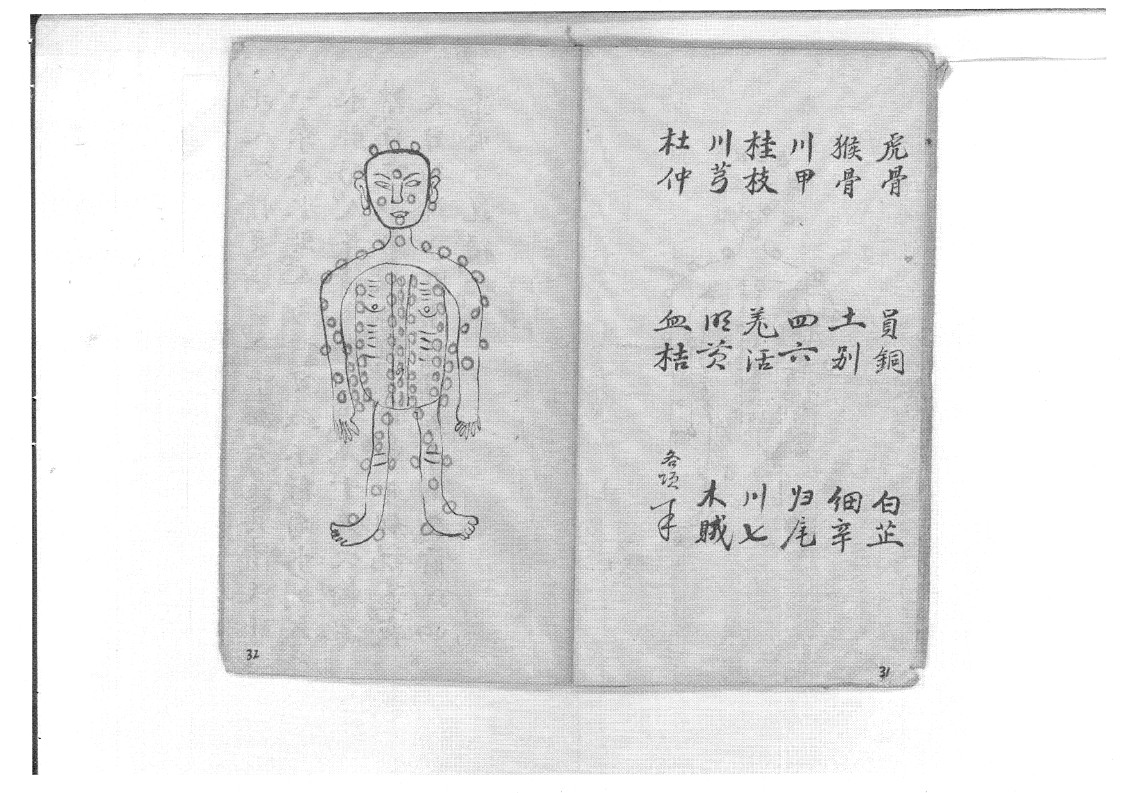 虎骨 員銅 白芷
猴骨 土别 細辛
川甲 四六 归尾
桂枝 羌活 川七
川芎 木賊
杜仲 血桔 各項
31
32